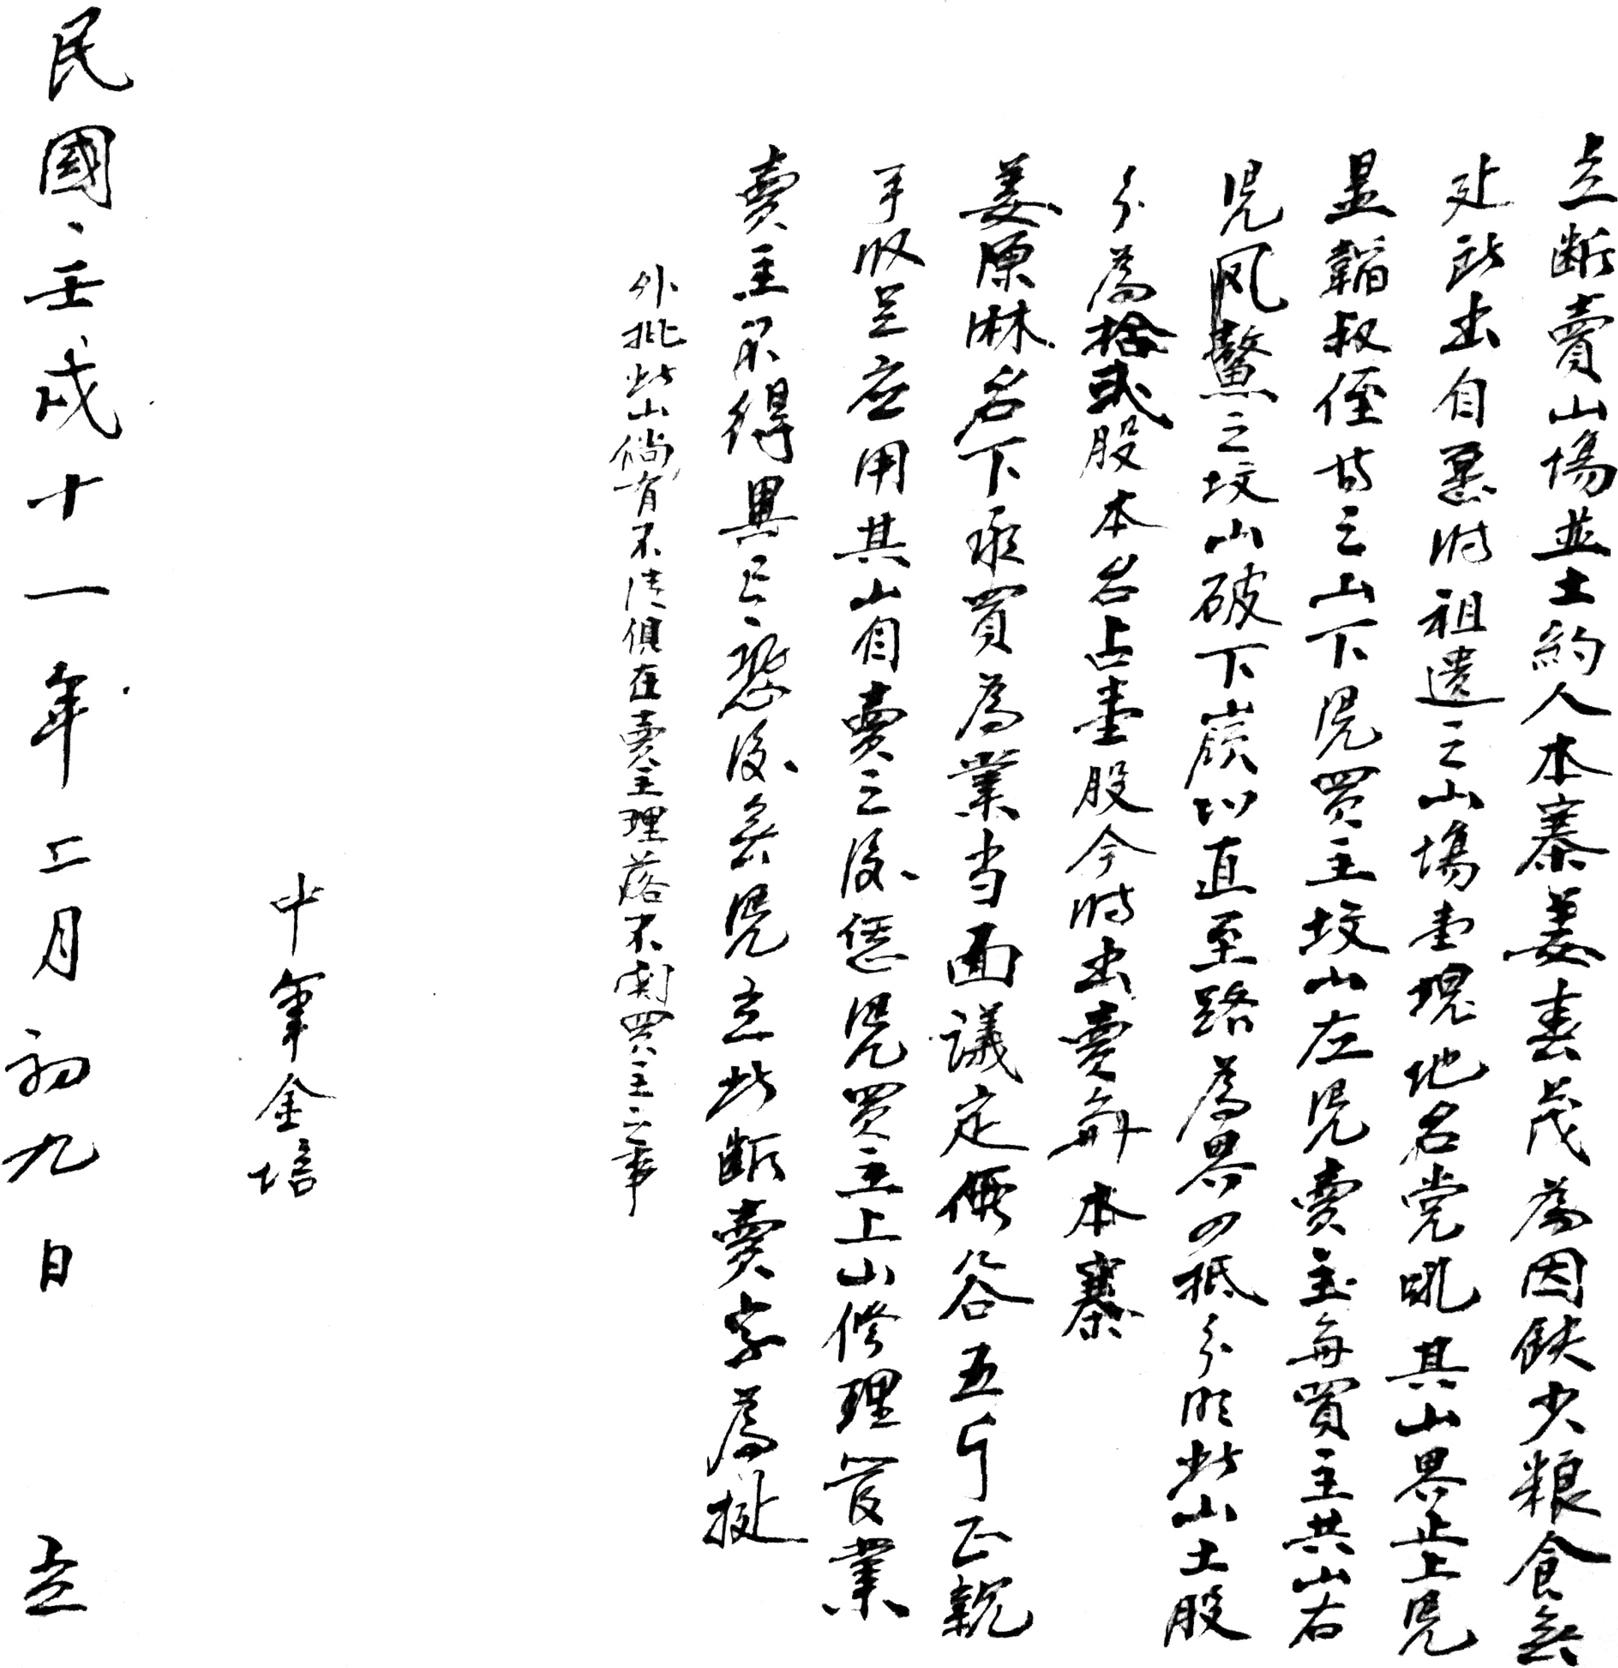 立断賣山塲並土約人本寨姜春茂為因缺少粮食無
处所出自愿将祖遗之山塲壹塊地名党吼其山界止上凭
显韜叔侄等之山下凭買主坟山左凭賣主每買主共山右
凭风鰲之坟山破下嶺以直至路為界四抵分明此山土股
分為拾貳股本名占壹股今将出賣與本寨
姜源淋名下承買為業当面議定價谷五斤正親
手收足应用其山自賣之後恁凭買主上山修理管業
賣主不得異言恐後無凭立此断賣字為拠
外批此山倘有不清俱在賣主理落不関買主之事
中筆金培
民國壬戌十一年二月初九日 立